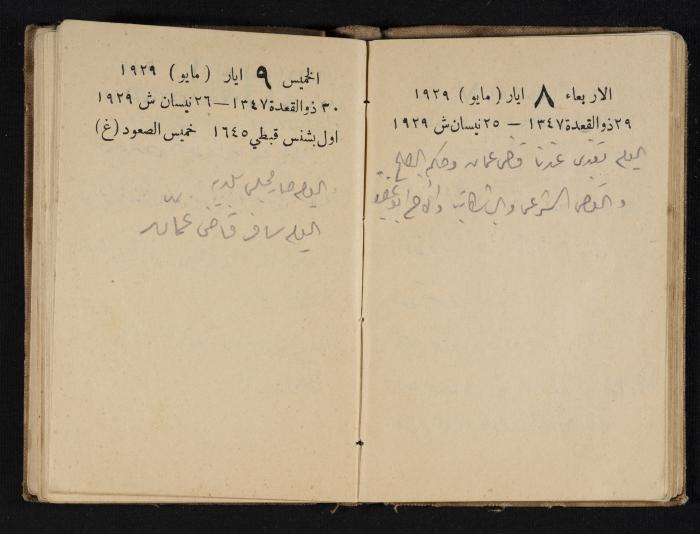 الاربعاء ٨ ايار (مايو) ١٩٢٩
٢٩ ذوالقعدة ١٣٤٧ — ٢٥ نيسان ش ١٩٢٩
اليوم تغدى عندنا قاضي عمان وحاكم الصلح
والقاضي الشرعي
الخميس ٩ ايار (مايو) ١٩٢٩
٣٠ ذوالقعدة ١٣٤٧ — ٢٦ نيسان ش ١٩٢٩
اول بشنس قبطي ١٦٤٥ خميس الصعود (غ)
اليوم صار مجلس بلديه
اليوم سافر قاضي عمان